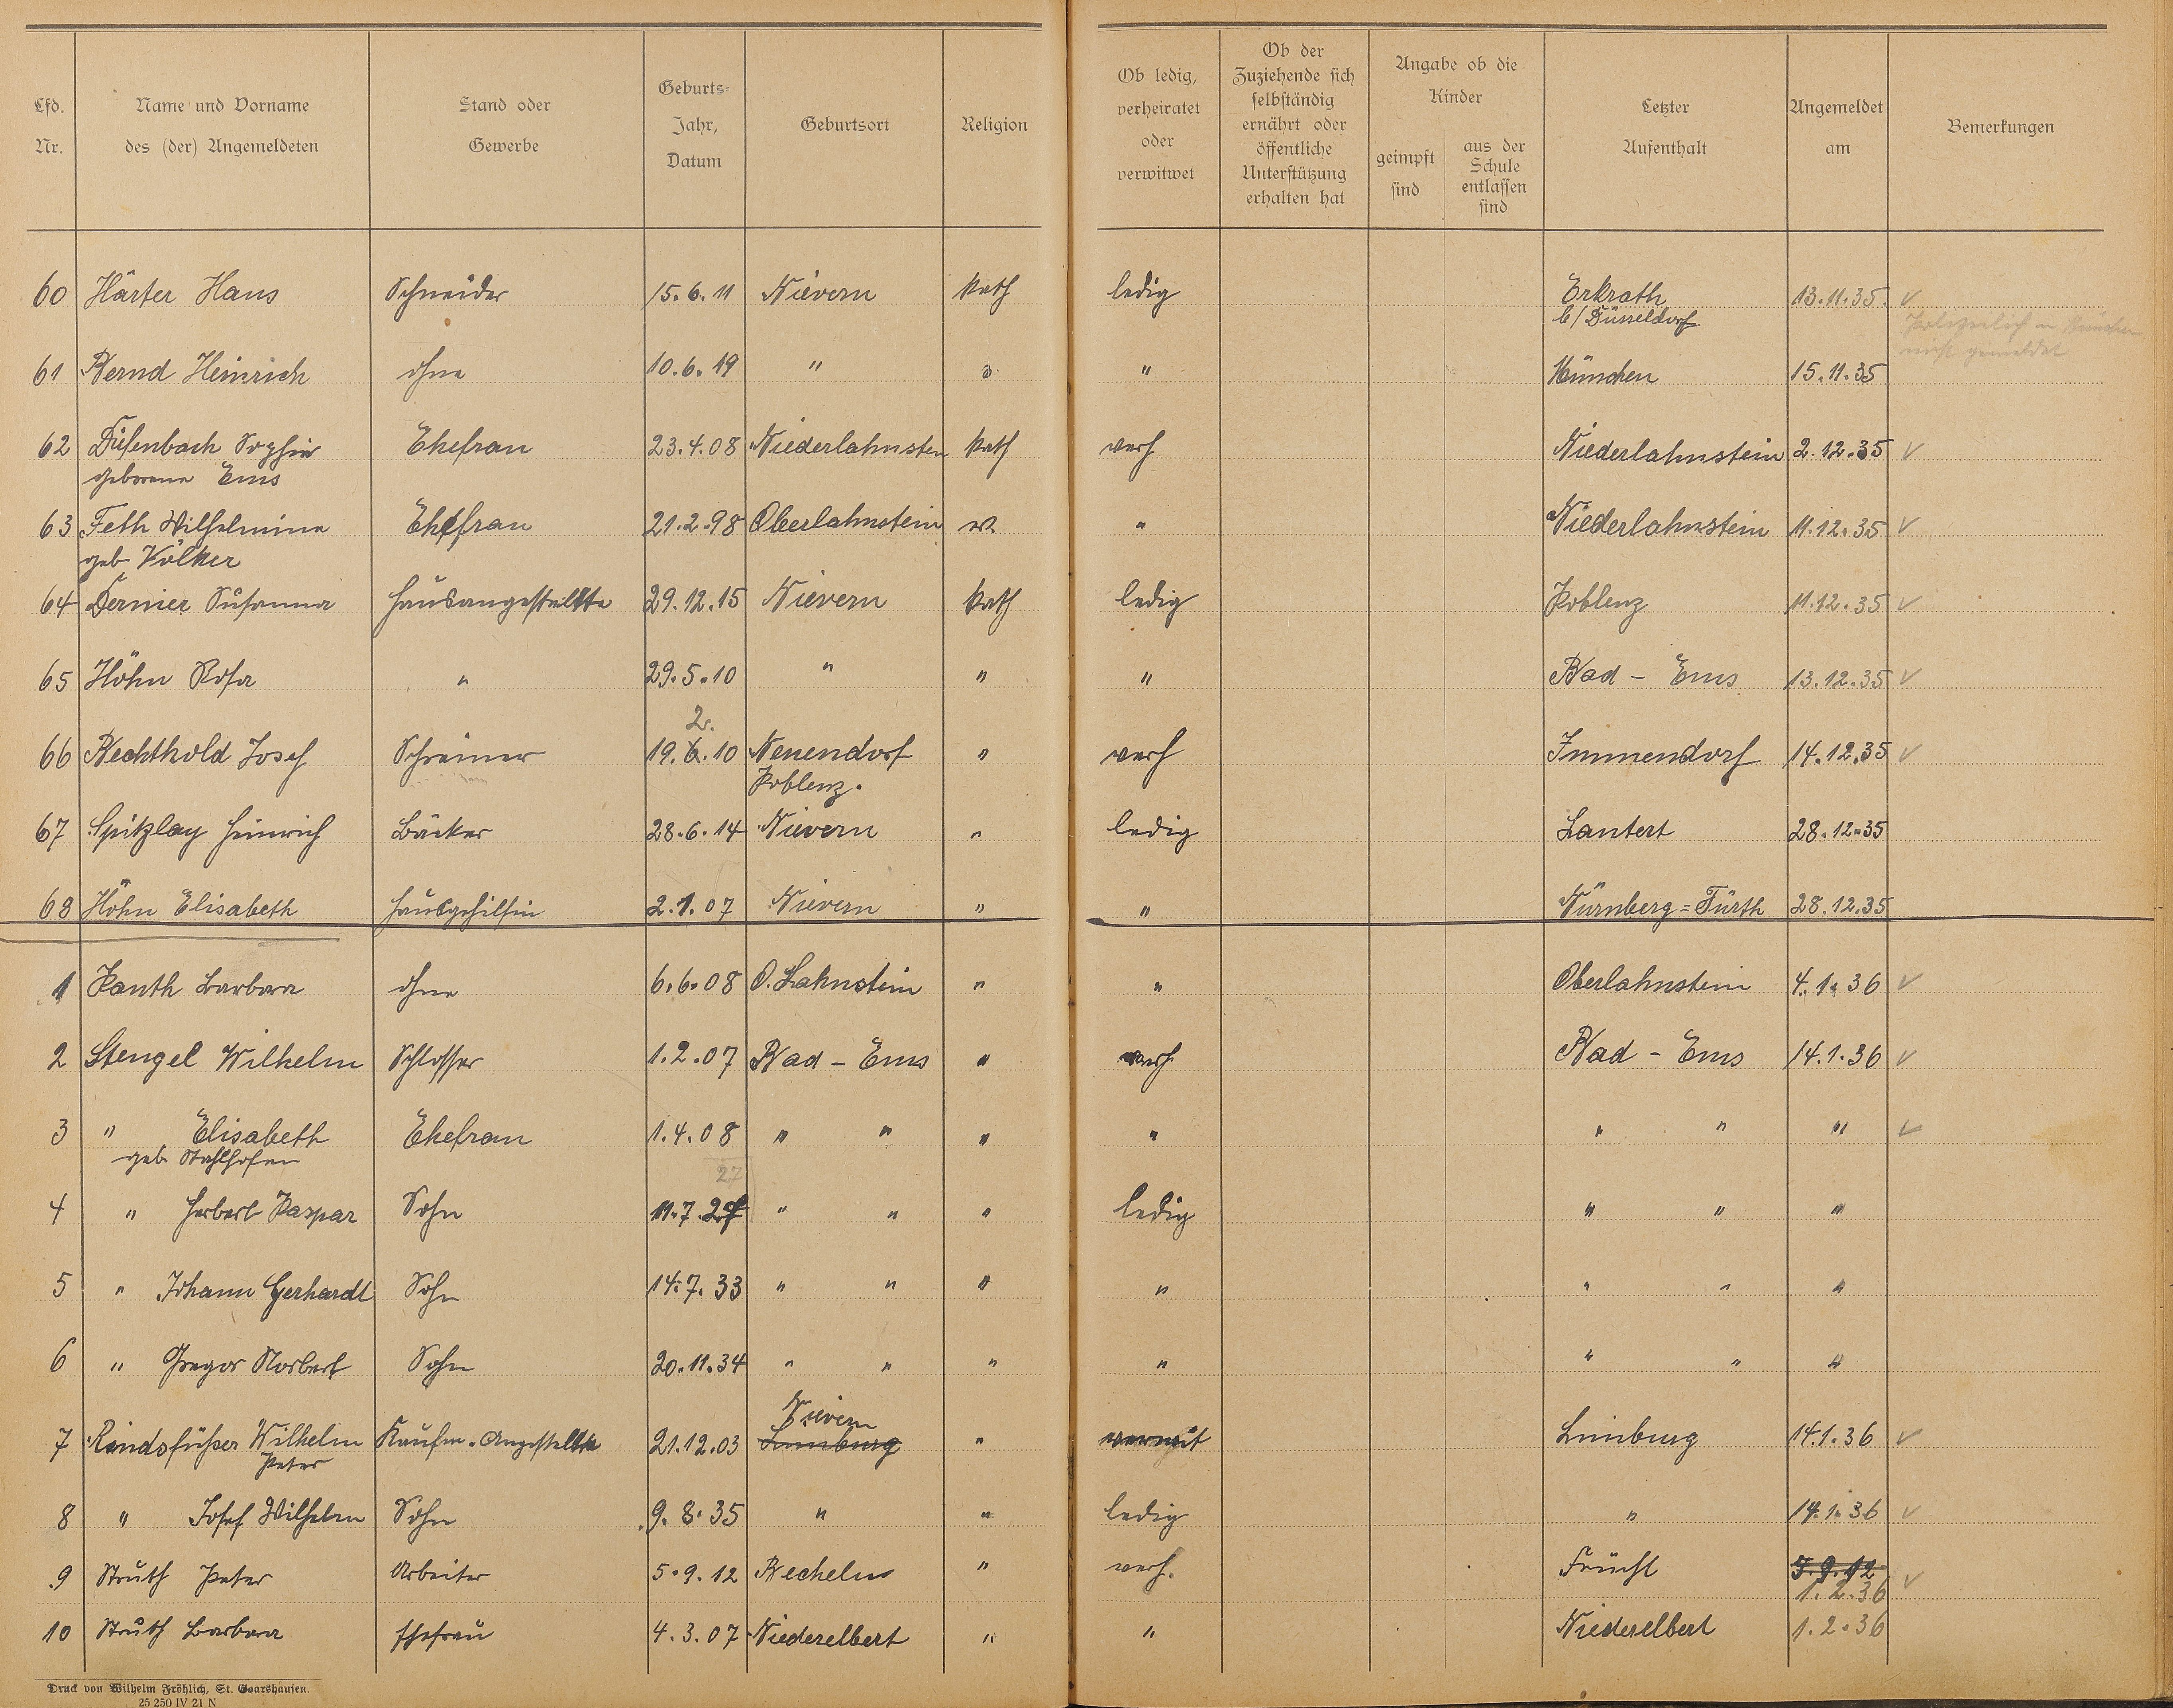 Lfd. Nr. Name und Vorname des (der) Angemeldeten Stand oder Gewerbe Geburts-Jahr, Datum Geburtsort Religion Ob ledig, verheiratet oder verwitwet Ob der Zuziehende sich selbständig ernährt oder öffentliche Unterstützung erhalten hat Angabe ob die Kinder geimpft sind aus der Schule entlassen sind Letzter Aufenthalt Angemeldet am Bemerkungen
60 Härter Hans Schneider 15.6.11 Nievern kath ledig Erkrath 13.11.35. ✓
b/ Düsseldorf
nicht gemeldet
61 Bernd Heinrich ohne 10.6.19 " " " München 15.11.35
62 Sophie Ehefrau 23.4.08 Niederlahnstein kath verh Niederlahnstein 2.12.35 ✓
geborene Ems
63 Feth Wilhelmina Ehefrau 21.2.98 Oberlahnstein " Niederlahnstein 11.12.35 ✓
geb Völker
64 Dernier Susanna Hausangestellte 29.12.15 Nievern kath ledig Koblenz 11.12.35 ✓
65 Höhn Rosa " 29.5.10 " " " Bad - Ems 13.12.35 ✓
2.
66 Bechthold Josef Schreiner 19.6.10 Neuendorf " verh Immendorf 14.12.35 ✓
Koblenz.
67 Spitzlay Heinrich Bäcker 28.6.14 Nievern " ledig Lautert 28.12.35
68 Höhn Elisabeth Hausgehilfin 2.1.07 Nievern " " Nürnberg=Fürth 28.12.35
1 Kanth Barbara ohne 6.6.08 O. Lahnstein " " Oberlahnstein 4.1.36 ✓
2 Stengel Wilhelm Schlosser 1.2.07 Bad - Ems " verh Bad - Ems 14.1.36 ✓
3 " Elisabeth Ehefrau 1.4.08 " " " " " " " ✓
geb Stahlhofen
27
4 " Herbert Kaspar Sohn 11.7.27 " " " ledig " " "
5 " Johann Gerhardt Sohn 14.7.33 " " " " " " "
6 " Gregor Norbert Sohn 20.11.34 " " " " " " "
Nievern
7 Rindsfüßer Wilhelm Kaufm. Angestellte 21.12.03 Limburg " Limburg 14.1.36 ✓
Peter
8 " Josef Wilhelm Sohn 9.8.35 " " ledig " 14.1.36 ✓
9 Struth Peter Arbeiter 5.9.12 Becheln " verh. Frücht 5.9.12 ✓
1.2.36
10 Struth Barbara Ehefrau 4.3.07 Niederelbert " " Niederelbert 1.2.36
Druck von Wilhelm Fröhlich, St. Goarshausen.
25 250 IV 21 N